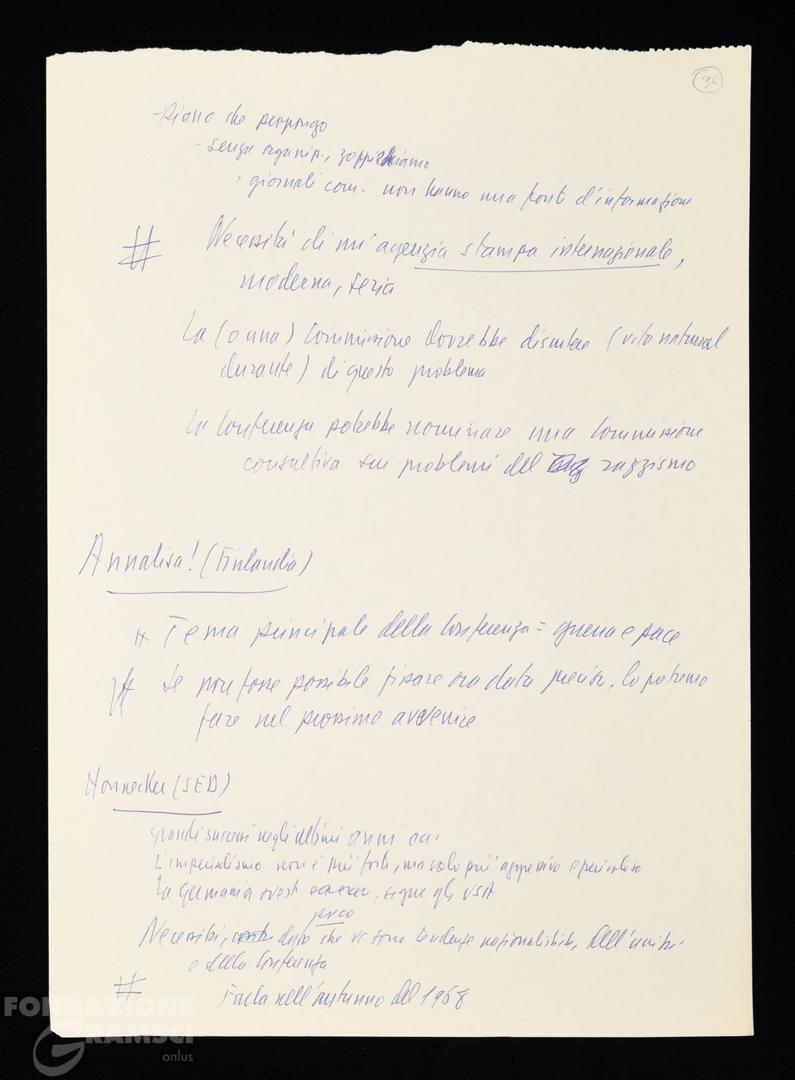 36
- Piano che propongo
- senza organizz., zoppichiamo
· giornali com. non hanno una fonte d'informazione
# Necessità di un'agenzia stampa internazionale,
moderna, seria
La (o una) Commissione dovrebbe discutere (vita natural
durante) di questo problema
La Conferenza potrebbe nominare una Commissione
consultiva sui problemi del razzismo
Annalisa! (Finlandia)
# Tema principale della Conferenza = guerra e pace
# Se non fosse possibile fissare ora data precisa, lo potremo
fare nel prossimo avvenire
Honnecker (SED)
Grandi successi negli ultimi anni ecc.
L'imperialismo non è più forte, ma solo più aggressivo e pericoloso
La Germania ovest segue gli USA
Necessità, dato che vi sono tendenze nazionalistiche, dell'unità
e della Conferenza
# Farla nell'autunno del 1968
FONDAZIONE
GRAMSCI
onlus